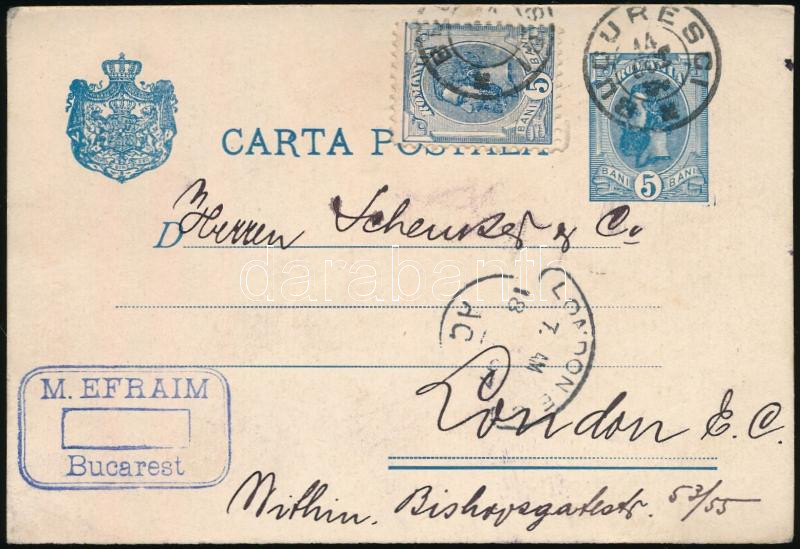 BUCURESCI
ROMANIA
5
BANI
BANI
ROMANIA
BANI 5 BANI
CARTA POSTALA
D Herren Schenker & Co
darabanth
LONDON E
18
7. AM
AC
London E.C.
M. EFRAIM
Bucarest
Within. Bishopsgatestr. 53/55